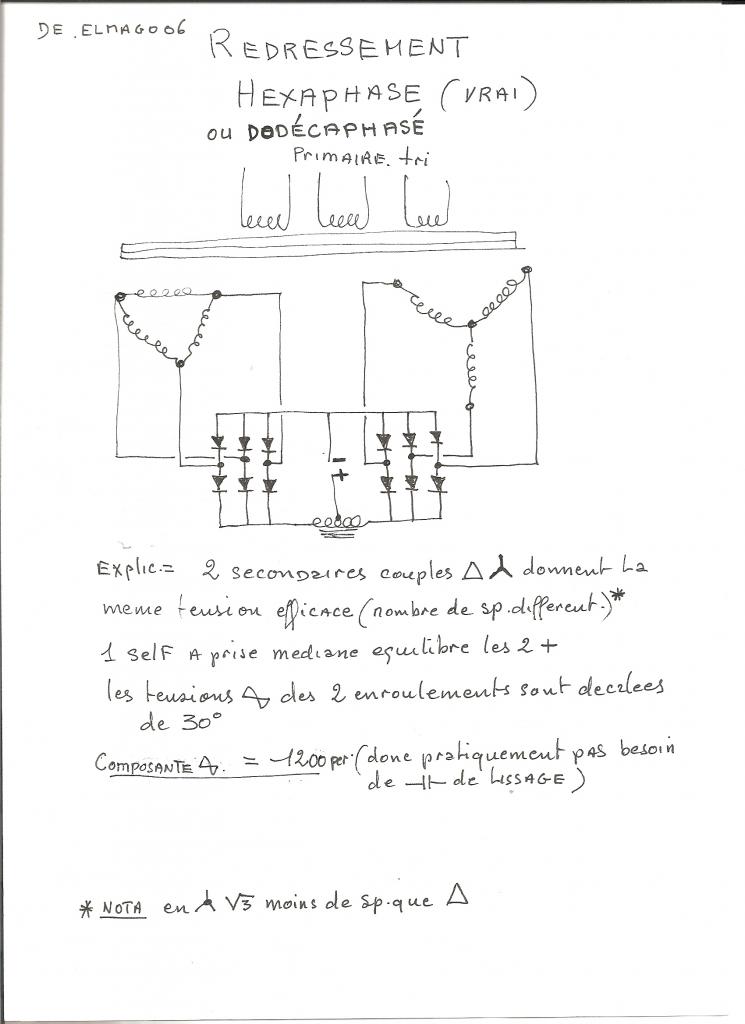 DE. ELMAGOO6
REDRESSEMENT
HEXAPHASE (VRAI)
OU DODÉCAPHASÉ
PRIMAIRE. tri
-
+
Explic.= 2 secondaires couples Δ⅄ donnent La
meme tension efficace (nombre de sp. different.)*
1 Self A prise mediane equilibre les 2 +
les tensions ∿ des 2 enroulements sont decalees
de 30°
COMPOSANTE ∿. = ~1200 per. (donc pratiquement pAs besoin
de ⊣⊢ de LISSAGE)
* NOTA en ⅄ √3 moins de sp. que Δ